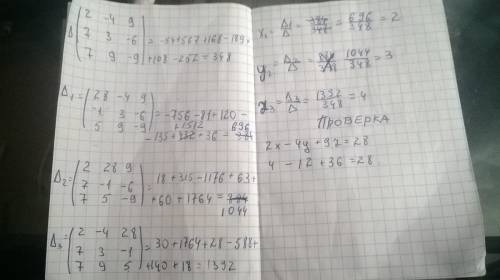 Δ(2 -4 9
7 3 -6
7 9 -9) = -54+567+168-189+
+108-252=348
Δ₁=(28 -4 9
-1 3 -6
5 9 -9) = -756-81+120-
+1512
-135+ +36= 696
Δ₂=(2 28 9
7 -1 -6
7 5 -9) = 18+315-1176+63+
+60+1764=
1044
Δ₃=(2 -4 28
7 3 -1
7 9 5) = 30+1764+28-588+
+140+18=1392
x₁=Δ₁/Δ= =696/348=2
y₂=Δ₂/Δ= 1044/348=3
z₃=Δ₃/Δ=1392/348=4
ПРОВЕРКА
2x-4y+9z=28
4-12+36=28